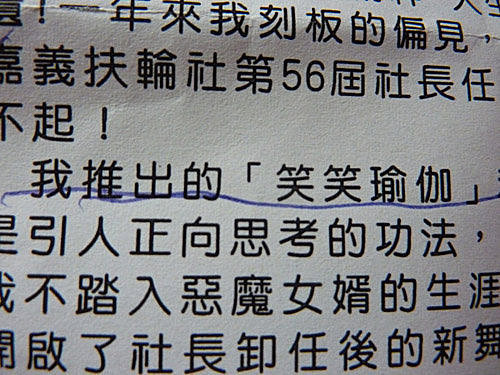 ！一年來我刻板的偏見，
嘉義扶輪社第56屆社長任
不起！
我推出的「笑笑瑜伽」
是引人正向思考的功法，
我不踏入惡魔女婿的生涯
開啟了社長卸任後的新舞